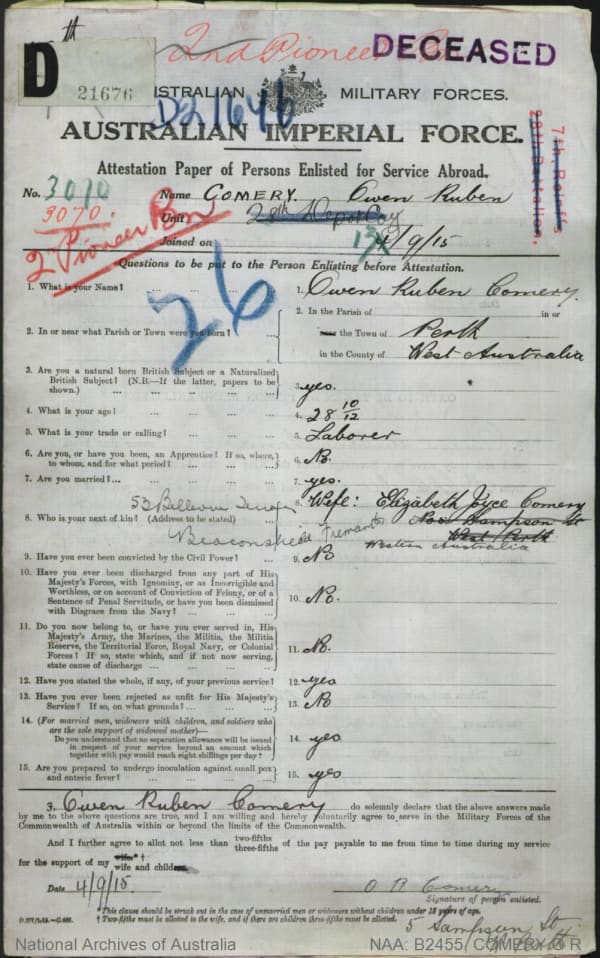 D
th
2nd Pioneer Bn
DECEASED
21676
D21646
AUSTRALIAN MILITARY FORCES.
AUSTRALIAN IMPERIAL FORCE.
Attestation Paper of Persons Enlisted for Service Abroad.
No. 3070 Name COMERY. Owen Ruben
3070. Unit 28th Depot Coy
2 Pioneer Bn
Joined on 4/9/15
28th Battalion.
7th Reinfts
26
Questions to be put to the Person Enlisting before Attestation.
1. What is your Name? 1. Owen Ruben Comery.
2. In or near what Parish or Town were you born? 2. In the Parish of in or
near the Town of Perth
in the County of West Australia
3. Are you a natural born British Subject or a Naturalized
British Subject? (N.B.—If the latter, papers to be
shown.) 3. yes.
4. What is your age? 4. 28 10/12
5. What is your trade or calling? 5. Laborer
6. Are you, or have you been, an Apprentice? If so, where,
to whom, and for what period? 6. No.
7. Are you married? 7. yes.
8. Who is your next of kin? (Address to be stated) 8. Wife: Elizabeth Joyce Comery
No 5 Sampson St
West Perth
53 Bellevue Terrace
Beaconsfield Fremantle
Western Australia
9. Have you ever been convicted by the Civil Power? 9. No
10. Have you ever been discharged from any part of His
Majesty's Forces, with Ignominy, or as Incorrigible and
Worthless, or on account of Conviction of Felony, or of a
Sentence of Penal Servitude, or have you been dismissed
with Disgrace from the Navy? 10. No.
11. Do you now belong to, or have you ever served in, His
Majesty's Army, the Marines, the Militia, the Militia
Reserve, the Territorial Force, Royal Navy, or Colonial
Forces? If so, state which, and if not now serving,
state cause of discharge 11. No.
12. Have you stated the whole, if any, of your previous service? 12. yes
13. Have you ever been rejected as unfit for His Majesty's
Service? If so, on what grounds? 13. No
14. (For married men, widowers with children, and soldiers who
are the sole support of widowed mother)—
Do you understand that no separation allowance will be issued
in respect of your service beyond an amount which
together with pay would reach eight shillings per day? 14. yes
15. Are you prepared to undergo inoculation against small pox
and enteric fever? 15. yes
I, Owen Ruben Comery do solemnly declare that the above answers made
by me to the above questions are true, and I am willing and hereby voluntarily agree to serve in the Military Forces of the
Commonwealth of Australia within or beyond the limits of the Commonwealth.
And I further agree to allot not less than two-fifths three-fifths of the pay payable to me from time to time during my service
for the support of my wife*† wife and children.
Date 4/9/15. O R Comery
Signature of person enlisted.
*This clause should be struck out in the case of unmarried men or widowers without children under 18 years of age.
† Two-fifths must be allotted to the wife, and if there are children three-fifths must be allotted.
5 Sampson St
W Perth
National Archives of Australia
NAA: B2455, COMERY O R